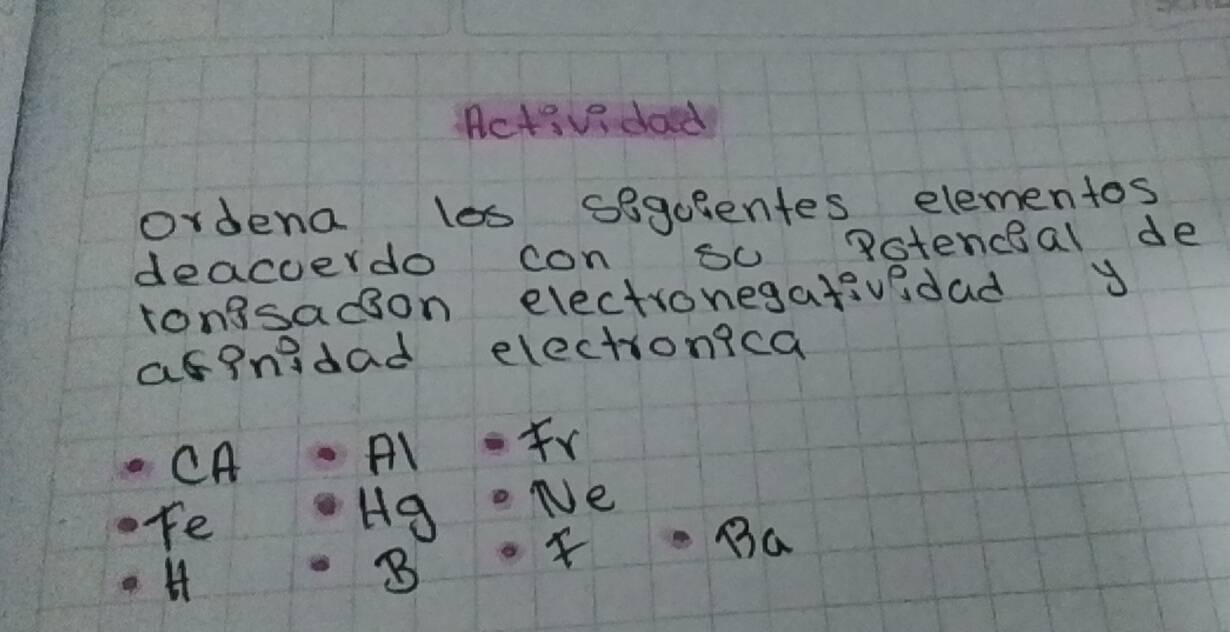 Actividad
ordena los siguientes elementos
deacuerdo con su Potencial de
ionisacion electronegatividad y
afinidad electronica
• CA • Al • Fr
• Fe • Hg • Ne
• H • B • F • Ba